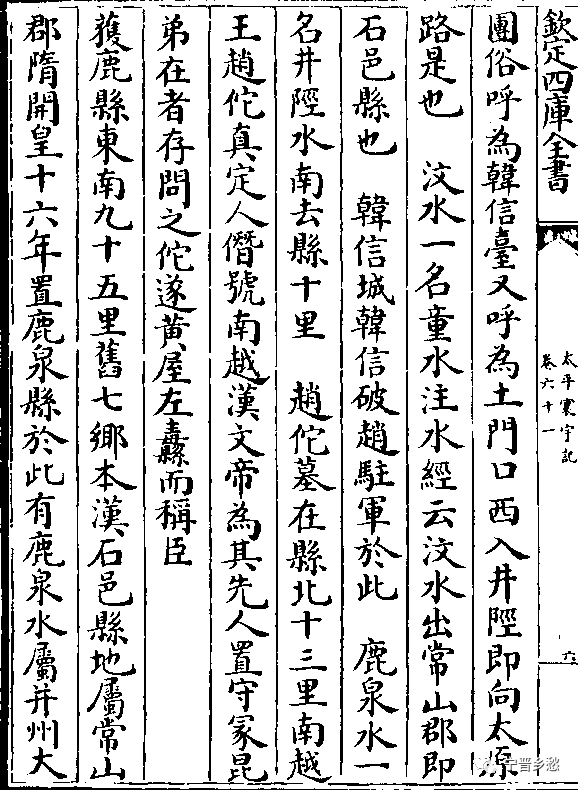 欽定四庫全書
太平寰宇記
卷六十一
六
團俗呼為韓信臺又呼為土門口西入井陘即向太原
路是也 汶水一名童水注水經云汶水出常山郡即
石邑縣也 韓信城韓信破趙駐軍於此 鹿泉水一
名井陘水南去縣十里 趙佗墓在縣北十三里南越
王趙佗真定人僭號南越漢文帝為其先人置守冢昆
弟在者存問之佗遂黃屋左纛而稱臣
獲鹿縣東南九十五里舊七鄉本漢石邑縣地屬常山
郡隋開皇十六年置鹿泉縣於此有鹿泉水屬并州大
宁晋乡愁